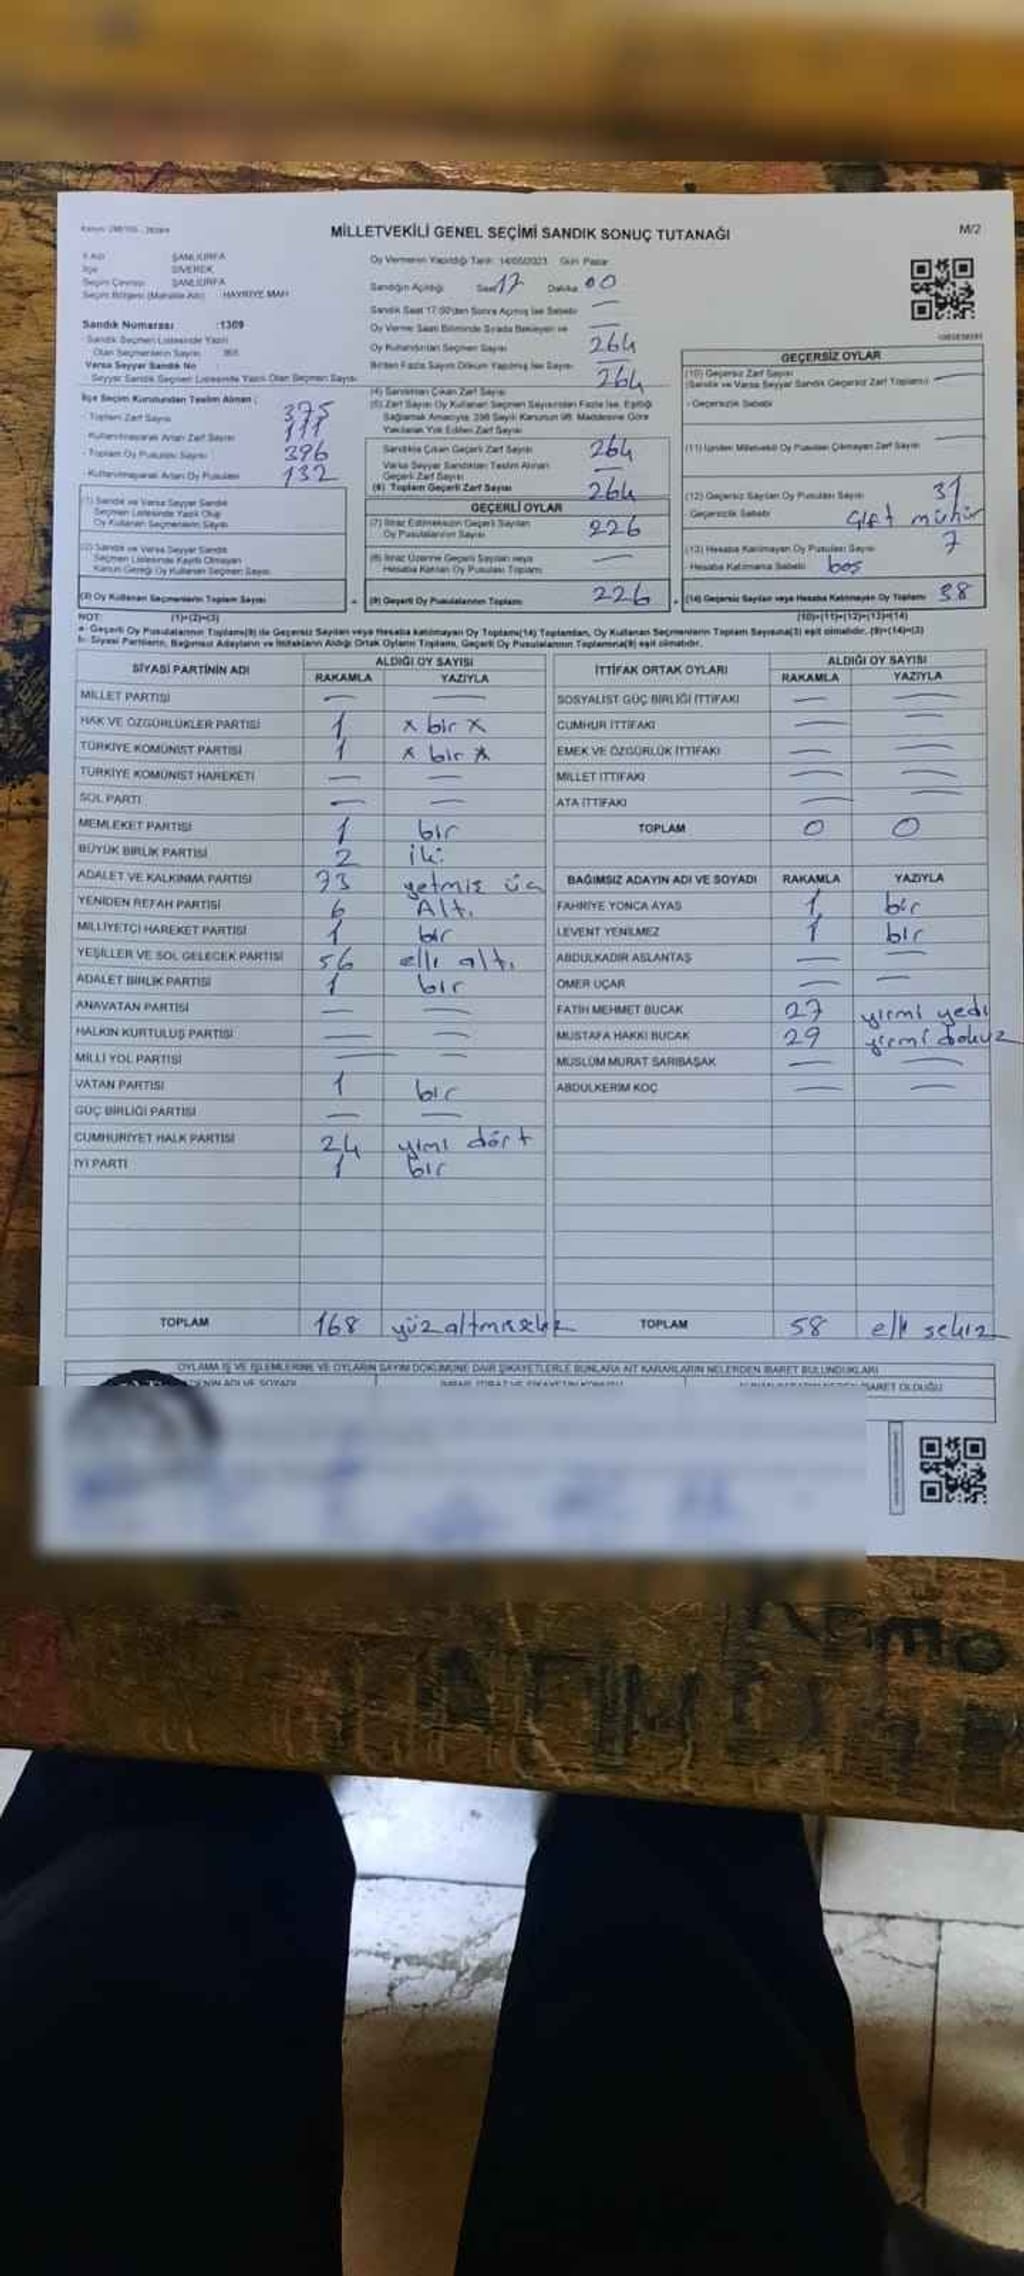 MİLLETVEKİLİ GENEL SEÇİMİ SANDIK SONUÇ TUTANAĞI
M/2
İl Adı ŞANLIURFA
İlçe SİVEREK
Seçim Çevresi ŞANLIURFA
Seçim Bölgesi (Mahalle Adı) : HAYRİYE MAH
Sandık Numarası :1309
Sandık Seçmen Listesinde Yazılı
Olan Seçmenlerin Sayısı
Varsa Seyyar Sandık No :
Seyyar Sandık Seçmen Listesinde Yazılı Olan Seçmen Sayısı
İlçe Seçim Kurulundan Teslim Alınan :
Toplam Zarf Sayısı 375
Kullanılmayarak Artan Zarf Sayısı 111
Toplam Oy Pusulası Sayısı 396
Kullanılmayarak Artan Oy Pusulası 132
(1) Sandık ve Varsa Seyyar Sandık
Seçmen Listesinde Yazılı Olup
Oy Kullanan Seçmenlerin Sayısı
(2) Sandık ve Varsa Seyyar Sandık
Seçmen Listesinde Kayıtlı Olmayan
Kanun Gereği Oy Kullanan Seçmen Sayısı
(3) Oy Kullanan Seçmenlerin Toplam Sayısı
Oy Vermenin Yapıldığı Tarih: 14/05/2023 Gün: Pazar
Sandığın Açıldığı Saat 17 Dakika 00
Sandık Saat 17:00'den Sonra Açılmış İse Sebebi —
Oy Verme Saati Bitiminde Sırada Bekleyen ve —
Oy Kullandırılan Seçmen Sayısı 264
Birden Fazla Sayım Döküm Yapılmış İse Sayısı —
(4) Sandıktan Çıkan Zarf Sayısı 264
(5) Zarf Sayısı Oy Kullanan Seçmen Sayısından Fazla İse, Eşitliği
Sağlamak Amacıyla, 298 Sayılı Kanunun 98. Maddesine Göre
Yakılarak Yok Edilen Zarf Sayısı
Sandıkta Çıkan Geçerli Zarf Sayısı 264
Varsa Seyyar Sandıktan Teslim Alınan
Geçerli Zarf Sayısı —
(6) Toplam Geçerli Zarf Sayısı 264
GEÇERLİ OYLAR
(7) İtiraz Edilmeksizin Geçerli Sayılan
Oy Pusulalarının Sayısı 226
(8) İtiraz Üzerine Geçerli Sayılan veya
Hesaba Katılan Oy Pusulası Toplamı —
(9) Geçerli Oy Pusulalarının Toplamı 226
GEÇERSİZ OYLAR
(10) Geçersiz Zarf Sayısı
(Sandık ve Varsa Seyyar Sandık Geçersiz Zarf Toplamı) —
Geçersizlik Sebebi
(11) İçinden Milletvekili Oy Pusulası Çıkmayan Zarf Sayısı —
(12) Geçersiz Sayılan Oy Pusulası Sayısı 31
Geçersizlik Sebebi çift mühür
(13) Hesaba Katılmayan Oy Pusulası Sayısı 7
Hesaba Katılmama Sebebi boş
(14) Geçersiz Sayılan veya Hesaba Katılmayan Oy Toplamı 38
NOT: (1)+(2)=(3) (10)+(11)+(12)+(13)=(14)
a- Geçerli Oy Pusulalarının Toplamı(9) ile Geçersiz Sayılan veya Hesaba katılmayan Oy Toplamı(14) Toplamları, Oy Kullanan Seçmenlerin Toplam Sayısına(3) eşit olmalıdır. (9)+(14)=(3)
b- Siyasi Partilerin, Bağımsız Adayların ve İttifakların Aldığı Ortak Oyların Toplamı, Geçerli Oy Pusulalarının Toplamına(9) eşit olmalıdır.
SİYASİ PARTİNİN ADI ALDIĞI OY SAYISI
RAKAMLA YAZIYLA
MİLLET PARTİSİ — —
HAK VE ÖZGÜRLÜKLER PARTİSİ 1 x bir x
TÜRKİYE KOMÜNİST PARTİSİ 1 x bir x
TÜRKİYE KOMÜNİST HAREKETİ — —
SOL PARTİ — —
MEMLEKET PARTİSİ 1 bir
BÜYÜK BİRLİK PARTİSİ 2 iki
ADALET VE KALKINMA PARTİSİ 73 yetmiş üç
YENİDEN REFAH PARTİSİ 6 Altı
MİLLİYETÇİ HAREKET PARTİSİ 1 bir
YEŞİLLER VE SOL GELECEK PARTİSİ 56 elli altı
ADALET BİRLİK PARTİSİ 1 bir
ANAVATAN PARTİSİ — —
HALKIN KURTULUŞ PARTİSİ — —
MİLLİ YOL PARTİSİ — —
VATAN PARTİSİ 1 bir
GÜÇ BİRLİĞİ PARTİSİ — —
CUMHURİYET HALK PARTİSİ 24 yimi dört
İYİ PARTİ 1 bir
TOPLAM 168 yüzaltmışsekiz
İTTİFAK ORTAK OYLARI ALDIĞI OY SAYISI
RAKAMLA YAZIYLA
SOSYALİST GÜÇ BİRLİĞİ İTTİFAKI — —
CUMHUR İTTİFAKI — —
EMEK VE ÖZGÜRLÜK İTTİFAKI — —
MİLLET İTTİFAKI — —
ATA İTTİFAKI — —
TOPLAM 0 0
BAĞIMSIZ ADAYIN ADI VE SOYADI RAKAMLA YAZIYLA
FAHRİYE YONCA AYAS 1 bir
LEVENT YENİLMEZ 1 bir
ABDULKADİR ASLANTAŞ — —
ÖMER UÇAR — —
FATİH MEHMET BUCAK 27 yirmi yedi
MUSTAFA HAKKI BUCAK 29 yirmi dokuz
MÜSLÜM MURAT SARIBAŞAK — —
ABDULKERİM KOÇ — —
TOPLAM 58 elli sekiz
OYLAMA İŞ VE İŞLEMLERİNE VE OYLARIN SAYIM DÖKÜMÜNE DAİR ŞİKAYETLERLE BUNLARA AİT KARARLARIN NELERDEN İBARET BULUNDUKLARI